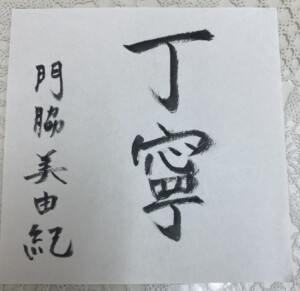 丁寧
門脇美由紀